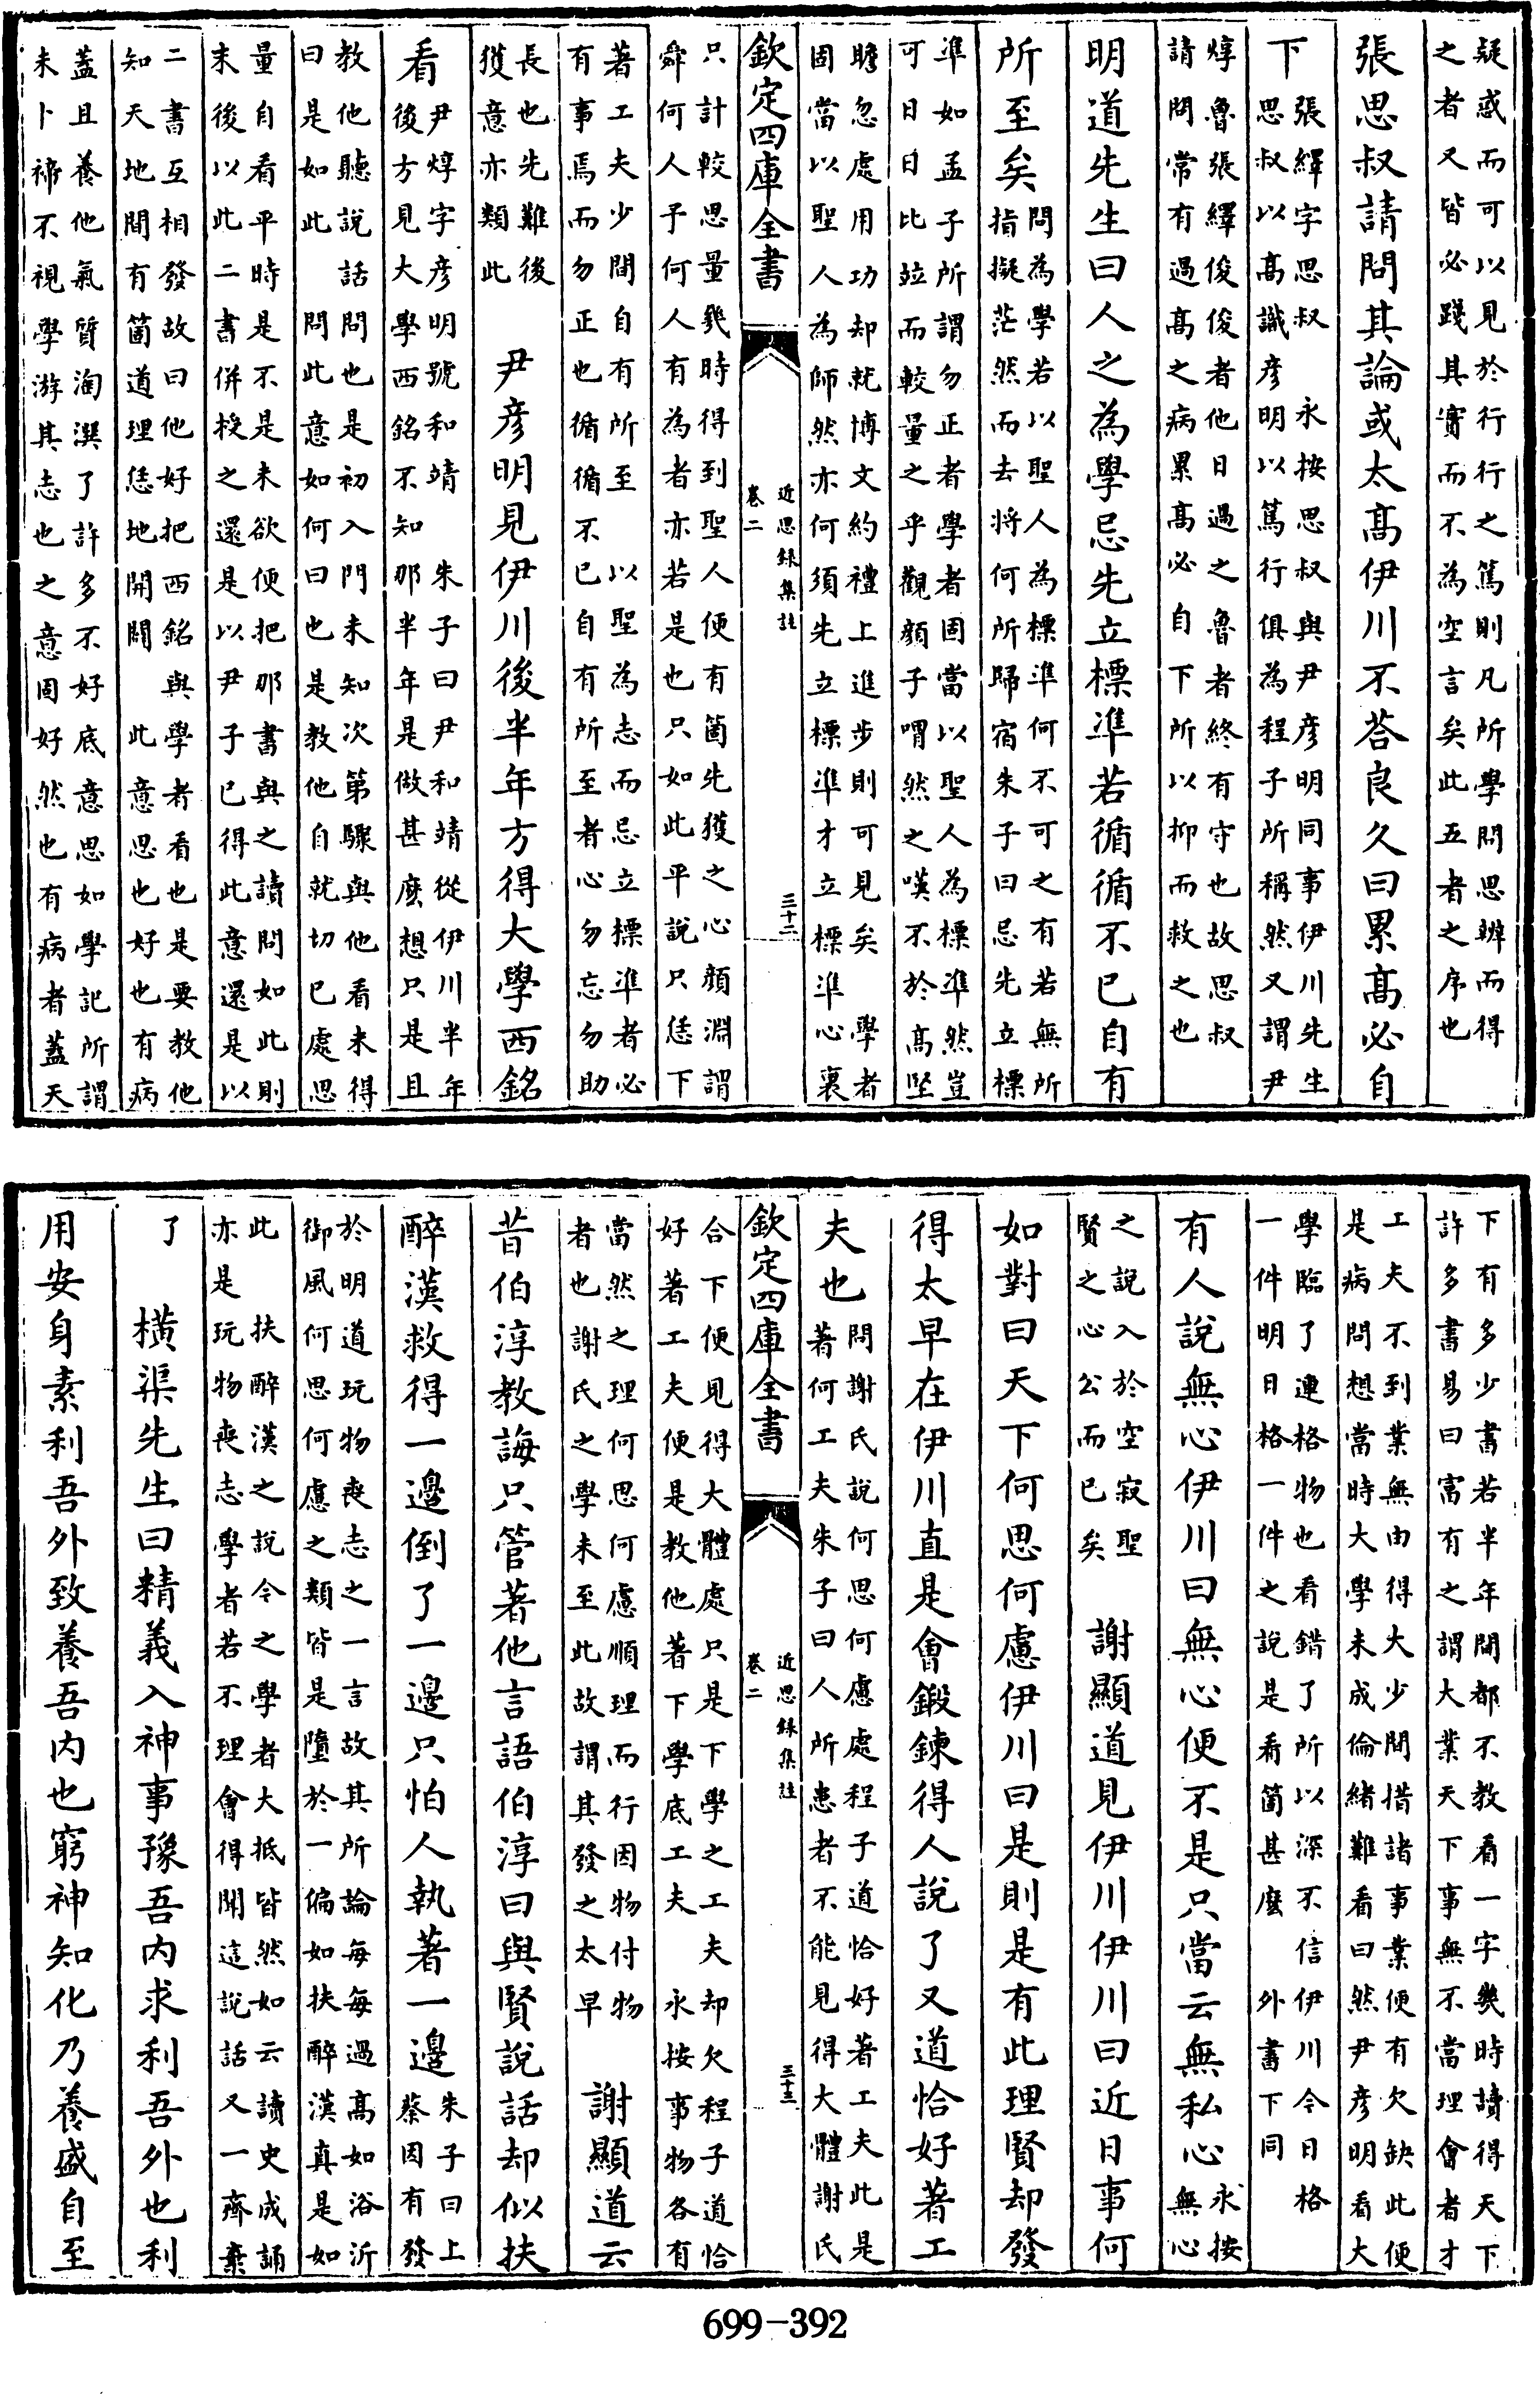 疑惑而可以見於行行之篤則凡所學問思辨而得
之者又皆必踐其實而不為空言矣此五者之序也
張思叔請問其論或太髙伊川不荅良久曰累髙必自
下張繹字思叔 永按思叔與尹彦明同事伊川先生
思叔以髙識彦明以篤行俱為程子所稱然又謂尹
焞魯張繹俊俊者他日過之魯者終有守也故思叔
請問常有過髙之病累髙必自下所以抑而救之也
明道先生曰人之為學忌先立標準若循循不已自有
所至矣問為學若以聖人為標準何不可之有若無所
指擬茫然而去将何所歸宿朱子曰忌先立標
準如孟子所謂勿正者學者固當以聖人為標準然豈
可日日比竝而較量之乎觀顔子喟然之嘆不於髙堅
瞻忽處用功却就博文約禮上進步則可見矣 學者
固當以聖人為師然亦何須先立標準才立標準心裏
欽定四庫全書
近思録集註
卷二
三十二
只計較思量幾時得到聖人便有箇先獲之心顔淵謂
舜何人予何人有為者亦若是也只如此平說只恁下
著工夫少間自有所至 以聖為志而忌立標準者必
有事焉而勿正也循循不已自有所至者心勿忘勿助
長也先難後
獲意亦類此
尹彦明見伊川後半年方得大學西銘
看尹焞字彦明號和靖 朱子曰尹和靖從伊川半年
後方見大學西銘不知那半年是做甚麽想只是且
教他聽說話 問也是初入門未知次第驟與他看未得
曰是如此 問此意如何曰也是教他自就切已處思
量自看平時是不是未欲便把那書與之讀問如此則
末後以此二書併授之還是以尹子已得此意還是以
二書互相發故曰他好把西銘與學者看也是要教他
知天地間有箇道理恁地開闊 此意思也好也有病
蓋且養他氣質淘潠了許多不好底意思如學記所謂
未卜禘不視學游其志也之意固好然也有病者蓋天
下有多少書若半年間都不教看一字幾時讀得天下
許多書易曰富有之謂大業天下事無不當理會者才
工夫不到業無由得大少間措諸事業便有欠缺此便
是病問想當時大學未成倫緒難看曰然尹彦明看大
學臨了連格物也看錯了所以深不信伊川今日格
一件明日格一件之說是看箇甚麽 外書下同
有人說無心伊川曰無心便不是只當云無私心永按
無心
之說入於空寂聖
賢之心公而已矣
謝顯道見伊川伊川曰近日事何
如對曰天下何思何慮伊川曰是則是有此理賢却發
得太早在伊川直是會鍛鍊得人說了又道恰好著工
夫也問謝氏說何思何慮處程子道恰好著工夫此是
著何工夫朱子曰人所患者不能見得大體謝氏
欽定四庫全書
近思録集註
卷二
三十三
合下便見得大體處只是下學之工夫却欠程子道恰
好著工夫便是教他著下學底工夫 永按事物各有
當然之理何思何慮順理而行因物付物
者也謝氏之學未至此故謂其發之太早
謝顯道云
昔伯淳教誨只管著他言語伯淳曰與賢說話却似扶
醉漢救得一邊倒了一邊只怕人執著一邊朱子曰上
蔡因有發
於明道玩物喪志之一言故其所論每每過髙如浴沂
御風何思何慮之類皆是墮於一偏如扶醉漢真是如
此 扶醉漢之說今之學者大抵皆然如云讀史成誦
亦是玩物喪志學者若不理會得聞這說話又一齊棄
了
橫渠先生曰精義入神事豫吾内求利吾外也利
用安身素利吾外致養吾内也窮神知化乃養盛自至
699-392